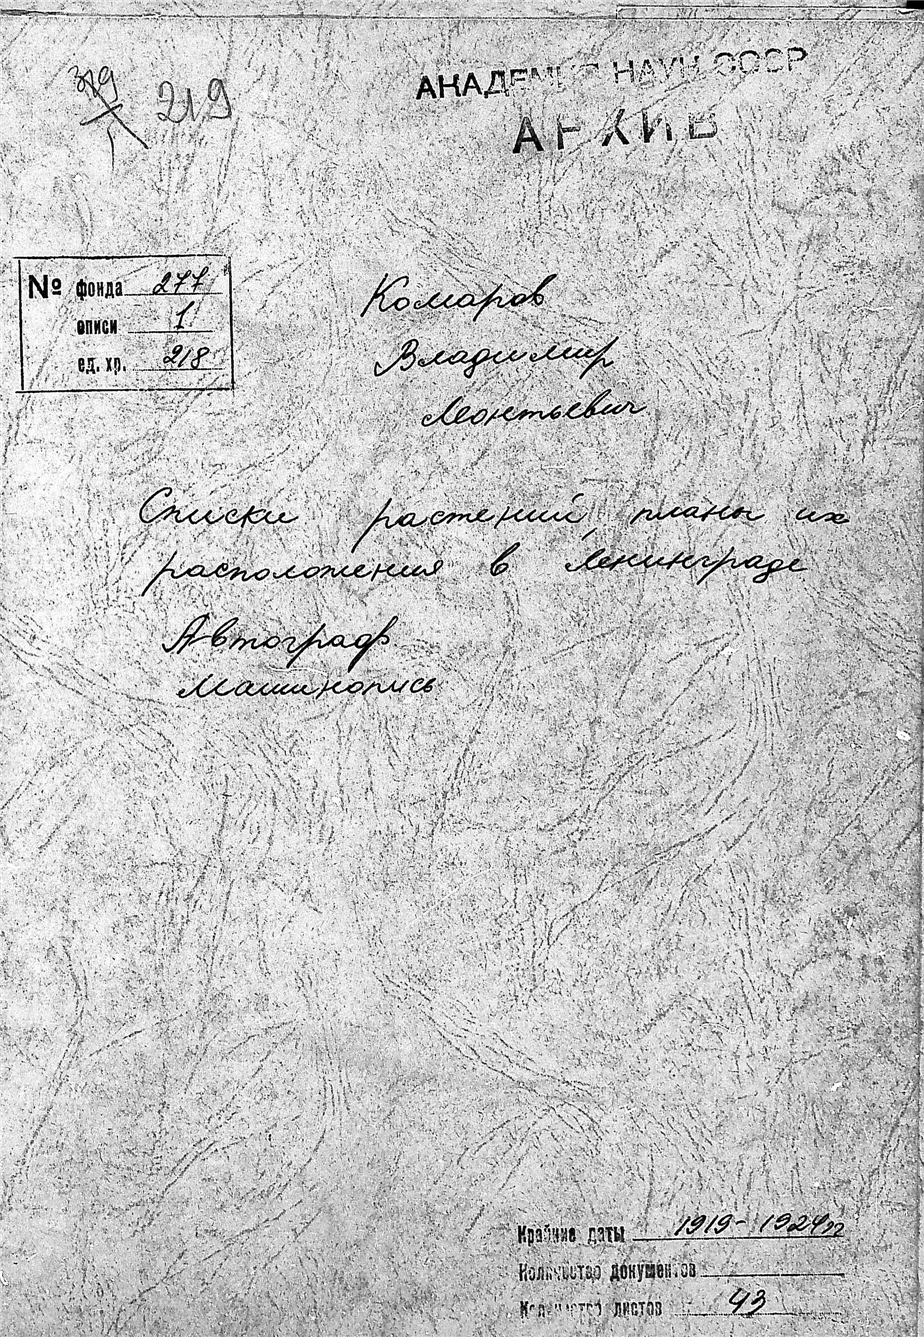 219
АКАДЕМИЯ НАУК СССР
АРХИВ
№ фонда 277
описи 1
ед. хр. 218
Комаров
Владимир
Леонтьевич
Списки растений, планы их
расположения в Ленинграде
Автограф
Машинопись
Крайние даты 1919-1924гг
Количество документов
Количество листов 43